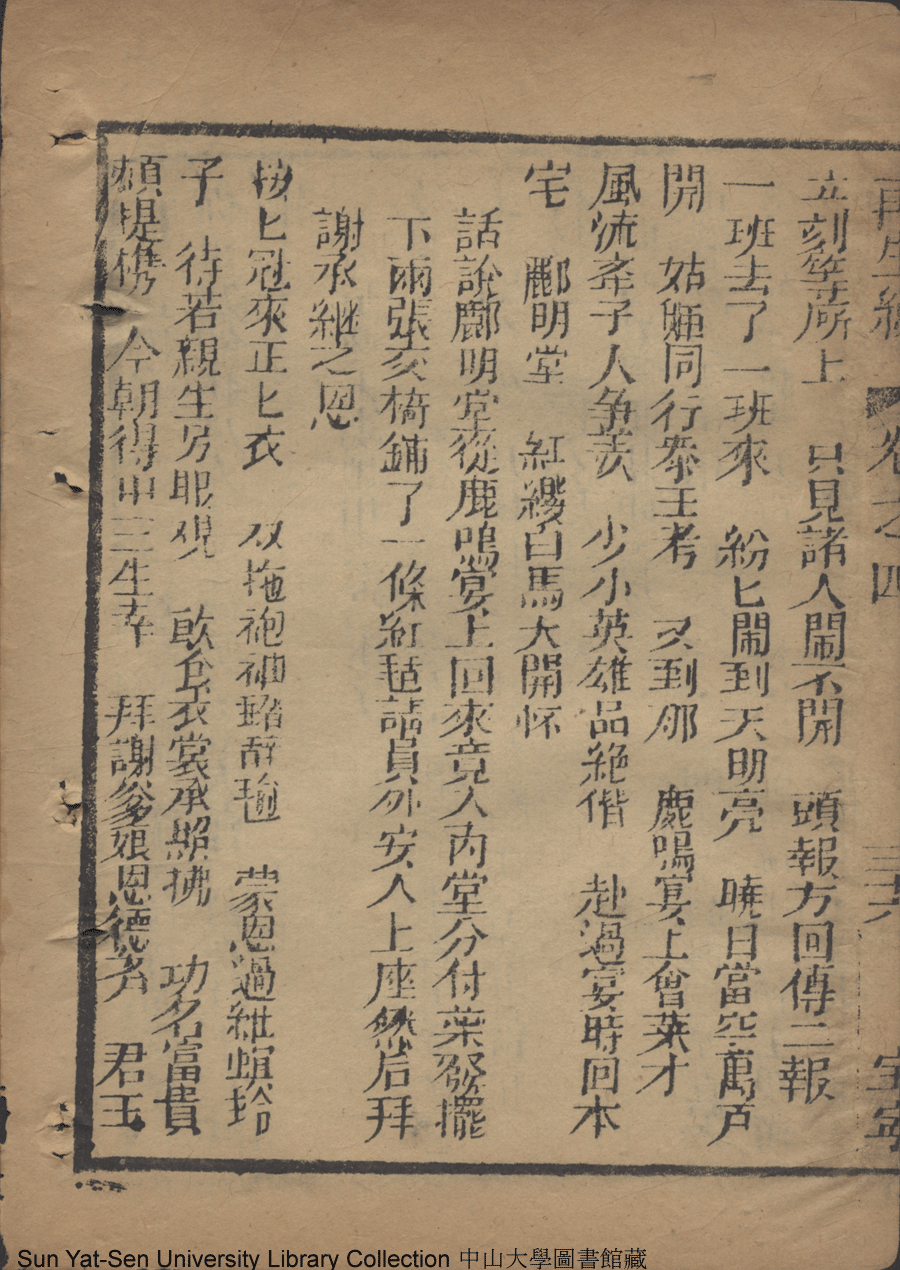 再生緣 卷之四 三六
立刻等 所上 只見諸人鬧不開 頭報方回傳二報
一班去了一班來 紛匕鬧到天明亮 曉日當空萬戶
開 姑 同行奉王考 又到那 鹿鳴宴上會英才
風流 子人爭羨 少小英雄品絕偕 赴過宴時回本
宅 酈明堂 紅纓白馬大開怀
話說酈明堂從鹿鳴宴上回來竟入內堂分付葉發擺
下兩張交椅鋪了一條紅毡請員外安人上座然后拜
謝承繼之恩
按匕冠來正匕衣 双拖袍袖 蒙恩過維螟玲
子 待若親生另眼覌 飲食衣裳承照拂 功名富貴
頼提携 今朝得中三生幸 拜謝爹娘恩德多 君玉
Sun Yat-Sen University Library Collection 中山大學圖書館藏